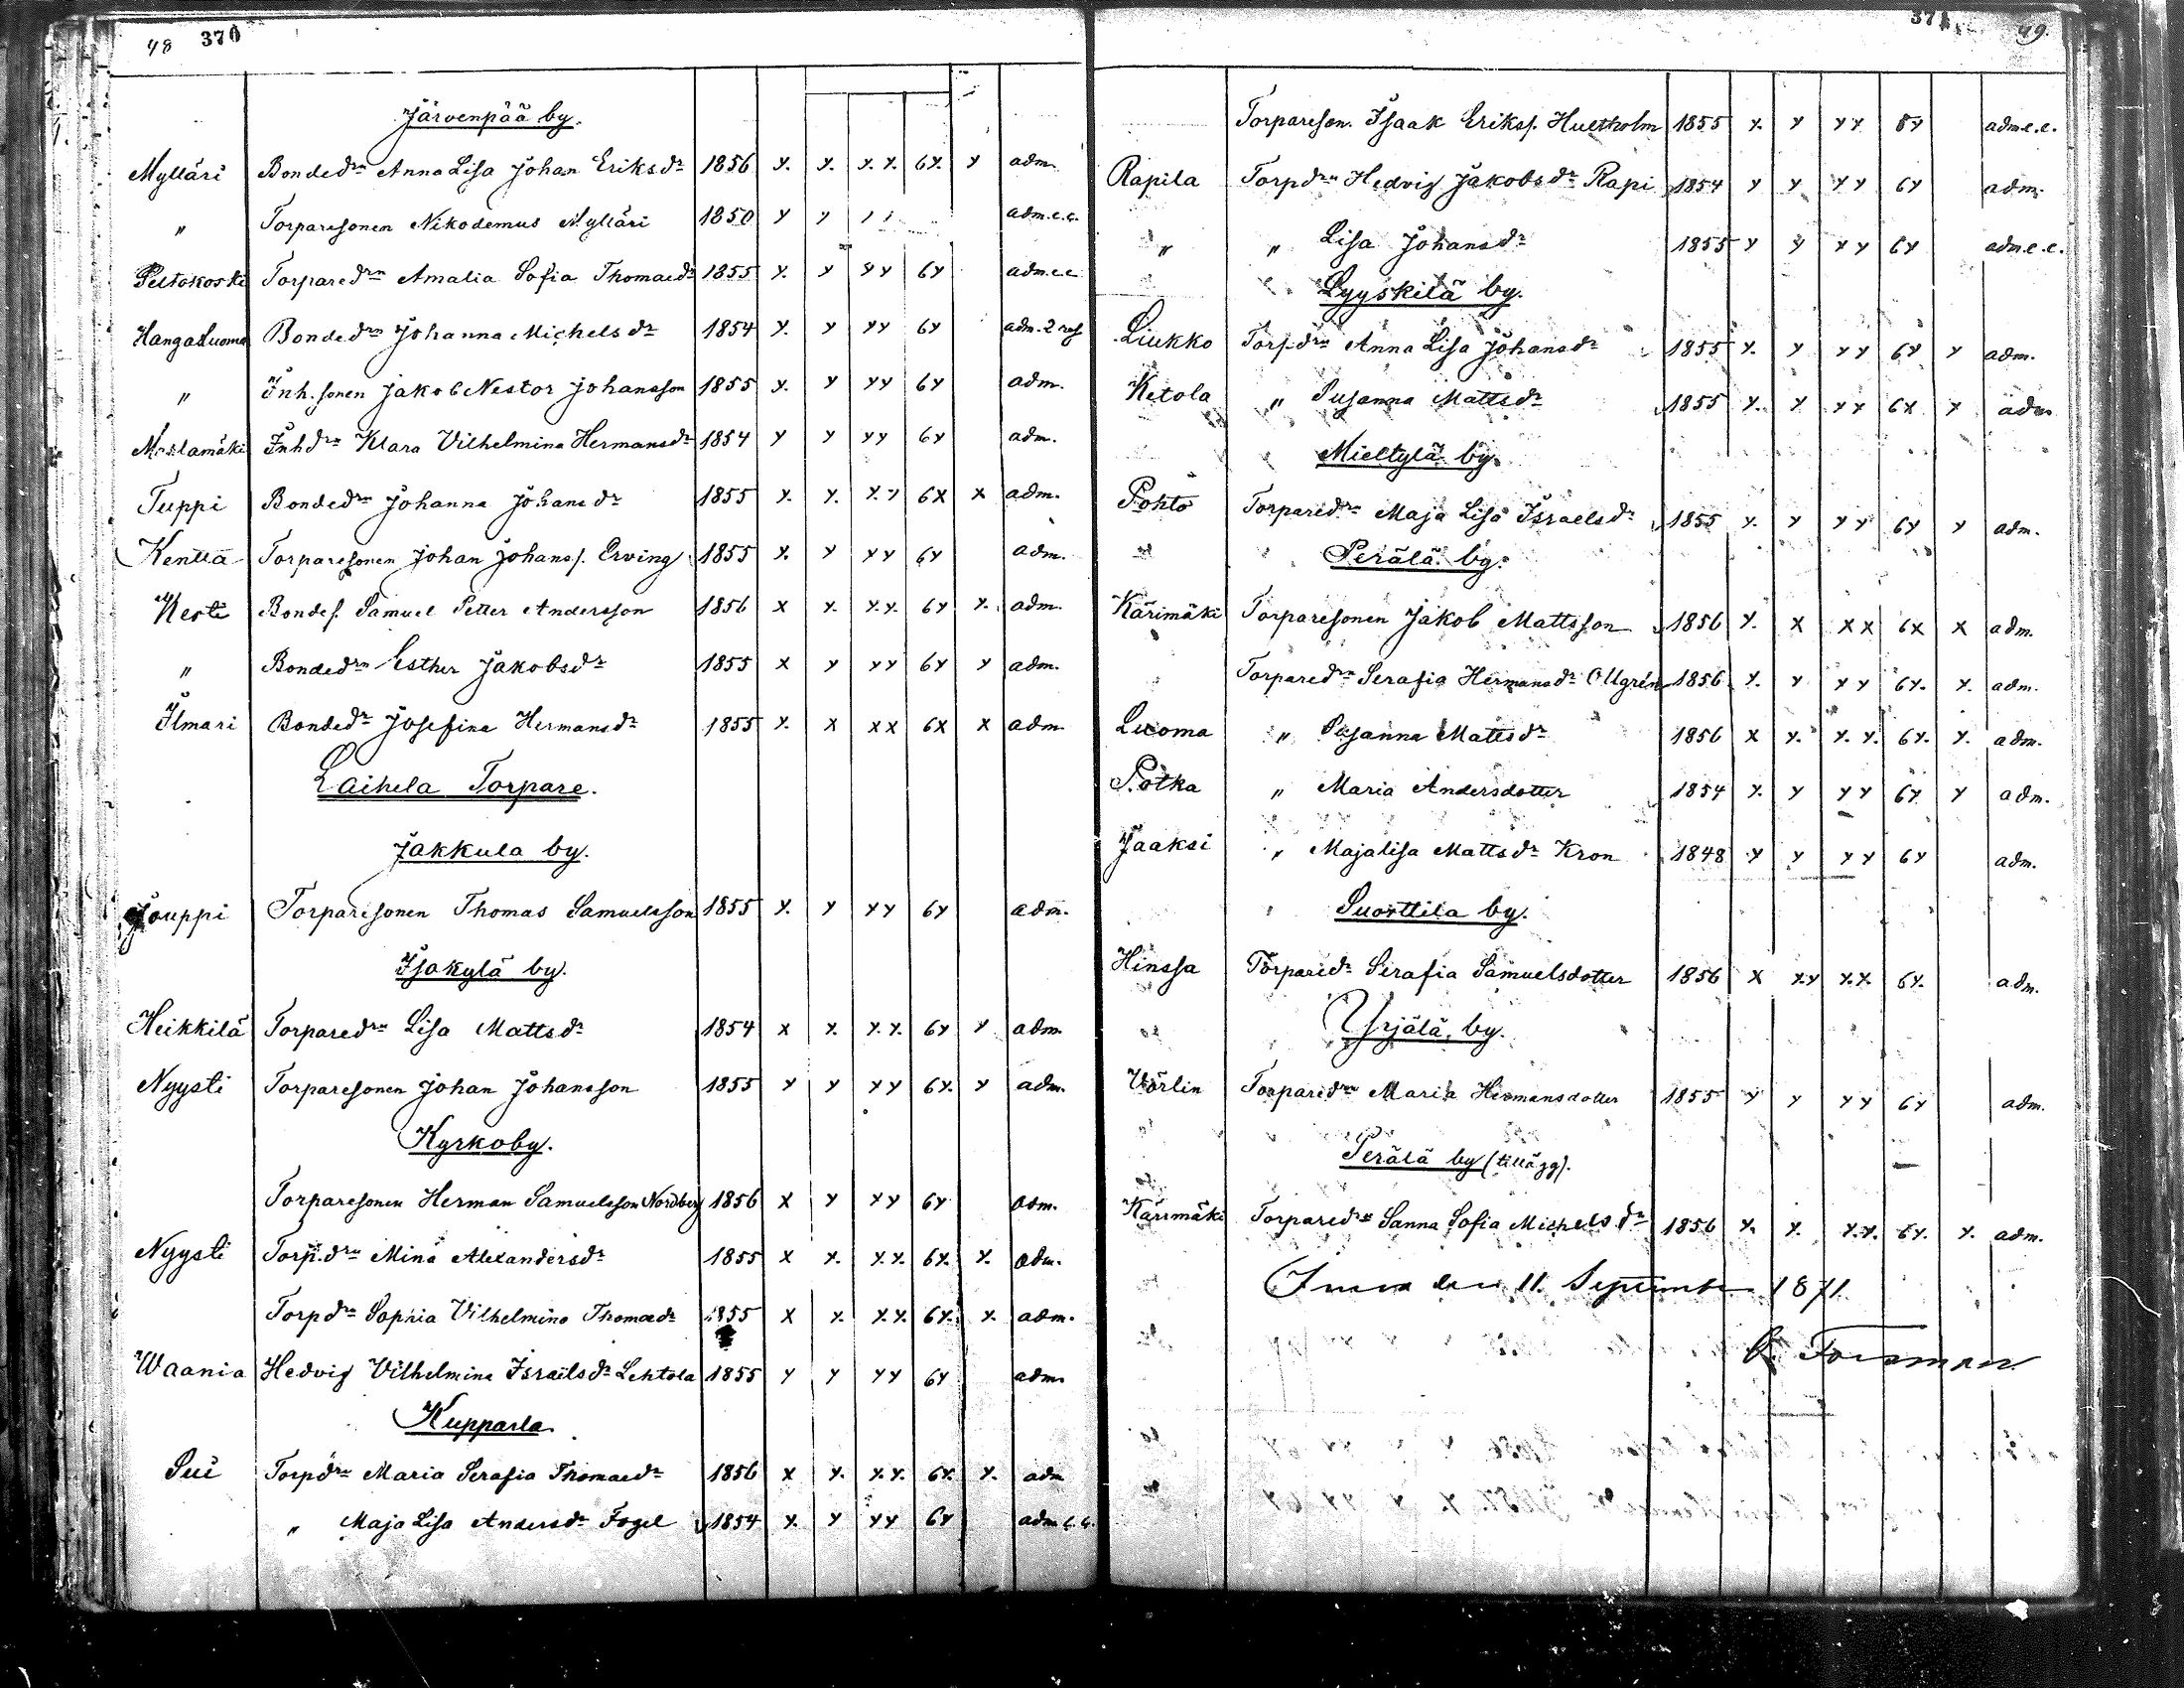 48 370
Järvenpää by.
Mylläri Bondedrn Anna Lisa Johan Eriksdr 1856 x. x. x.x. 6x. x adm.
" Torparesonen Nikodemus Mylläri 1850 x x adm.c.c.
Peltokoski Torparedrn Amalia Sofia Thomasdr 1855 x. x xx 6x adm.c.c
Hangasluoma Bondedrn Johanna Michelsdr 1854 x. x xx 6x adm. 2
" Inh. sonen Jakob Nestor Johansson 1855 x. x xx 6x adm.
Inhdrn Klara Vilhelmina Hermansdr 1854 x x xx 6x adm.
Tuppi Bondedrn Johanna Johansdr 1855 x. x. x.x 6x x adm.
Kenttä Torparesonen Johan Johanss. Erving 1855 x. x xx 6x adm.
Nesti Bondes. Samuel Petter Andersson 1856 x x. x.x. 6x x. adm.
" Bondedrn Esther Jakobsdr 1855 x x xx 6x x adm.
Ilmari Bondedr Josefina Hermansdr 1855 x. x xx 6x x adm.
Laihela Torpare.
Jakkula by.
Jouppi Torparesonen Thomas Samuelsson 1855 x. x xx 6x adm.
Isokylä by.
Heikkilä Torparedrn Lisa Mattsdr 1854 x x. x.x. 6x x adm.
Nyysti Torparesonen Johan Johansson 1855 x x xx 6x. x adm.
Kyrkoby.
Torparesonen Herman Samuelsson Nordberg 1856 x x xx 6x adm.
Nyysti Torp.drn Mina Alexandersdr 1855 x x. x.x. 6x. x. adm.
Torpdrn Sophia Vilhelmina Thomasdr 1855 x x. x.x. 6x. x. adm.
Waania Hedvig Vilhelmina Israelsdr Lehtola 1855 x x xx 6x adm.
Kupparla.
Pui Torpdrn Maria Serafia Thomasdr 1856 x x. x.x. 6x. x. adm
" Maja Lisa Andersdr Fogel 1854 x. x xx 6x adm.c.c.
371 49.
Torpareson. Isaak Erikss. Hultholm 1855 x. x xx 8x adm.c.c.
Rapila Torpdrn Hedvig Jakobsdr Rapi 1854 x x xx 6x adm.
" " Lisa Johansdr 1855 x x xx 6x adm.c.c.
Lyyskilä by.
Liukko Torpdrn Anna Lisa Johansdr 1855 x. x xx 6x x adm.
Ketola " Susanna Mattsdr 1855 x. x xx 6x x adm
Mieltylä by.
Pohto Torparedrn Maja Lisa Israelsdr 1855 x. x xx 6x x adm.
Perälä by.
Kärimäki Torparesonen Jakob Mattsson 1856 x. x xx 6x x adm.
Torparedrn Serafia Hermansdr Ollgrén 1856 x. x xx 6x. x. adm.
Luoma " Susanna Mattsdr 1856 x x. x.x. 6x. x. adm.
Potka " Maria Andersdotter 1854 x. x xx 6x x adm.
Jaaksi " Majalisa Mattsdr Kron 1848 x x xx 6x adm.
Suorttila by.
Hinssa Torparedr Serafia Samuelsdotter 1856 x x.x x.x. 6x. adm.
Yrjälä by.
Vörlin Torparedrn Maria Hermansdotter 1855 x x xx 6x adm.
Perälä by (tillägg).
Kärrmäki Torparedrn Sanna Sofia Michelsdr 1856 x. x. x.x. 6x. x. adm.
den 11. September 1871
Forsman